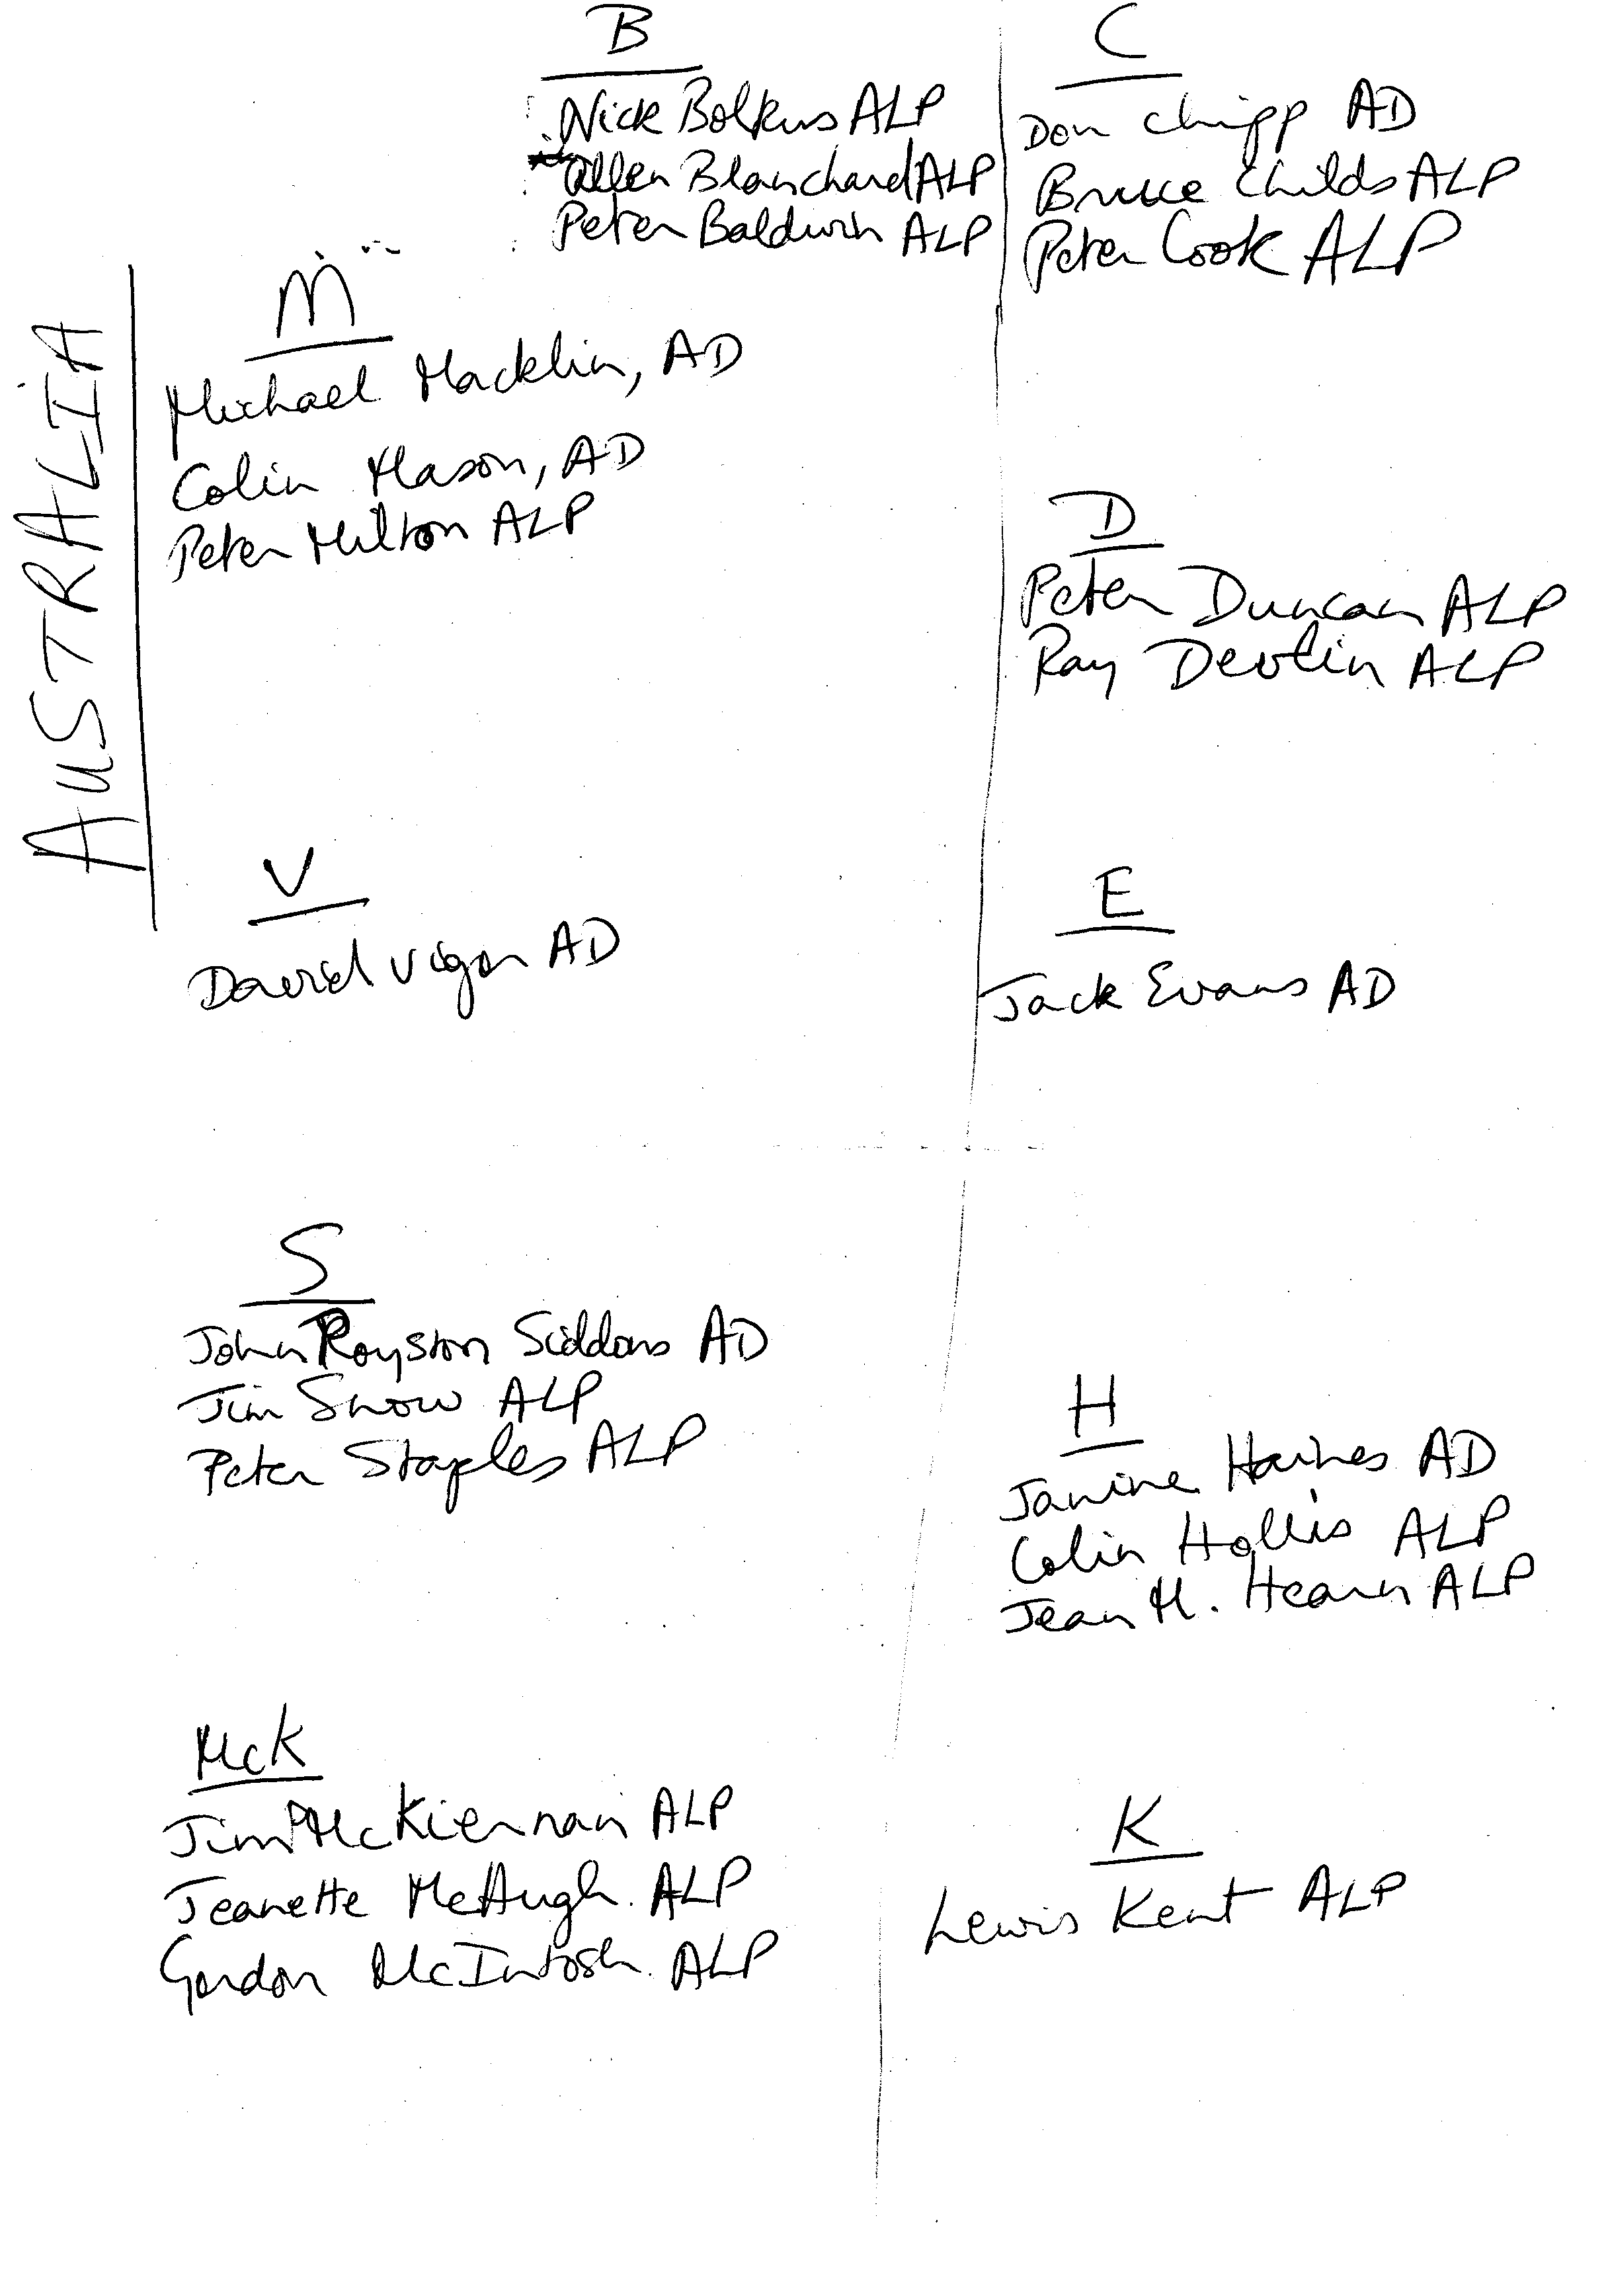 AUSTRALIA
B
Nick Bolkus ALP
Allen Blanchard ALP
Peter Baldwin ALP
M
Michael Macklin, AD
Colin Mason, AD
Peter Milton ALP
V
David Vigor AD
S
John Royston Siddons AD
Jim Snow ALP
Peter Staples ALP
McK
Jim McKiernan ALP
Jeanette McHugh. ALP
Gordon McIntosh. ALP
C
Don Chipp AD
Bruce Childs ALP
Peter Cook ALP
D
Peter Duncan ALP
Ray Devlin ALP
E
Jack Evans AD
H
Janine Haines AD
Colin Hollis ALP
Jean M. Hearn ALP
K
Lewis Kent ALP